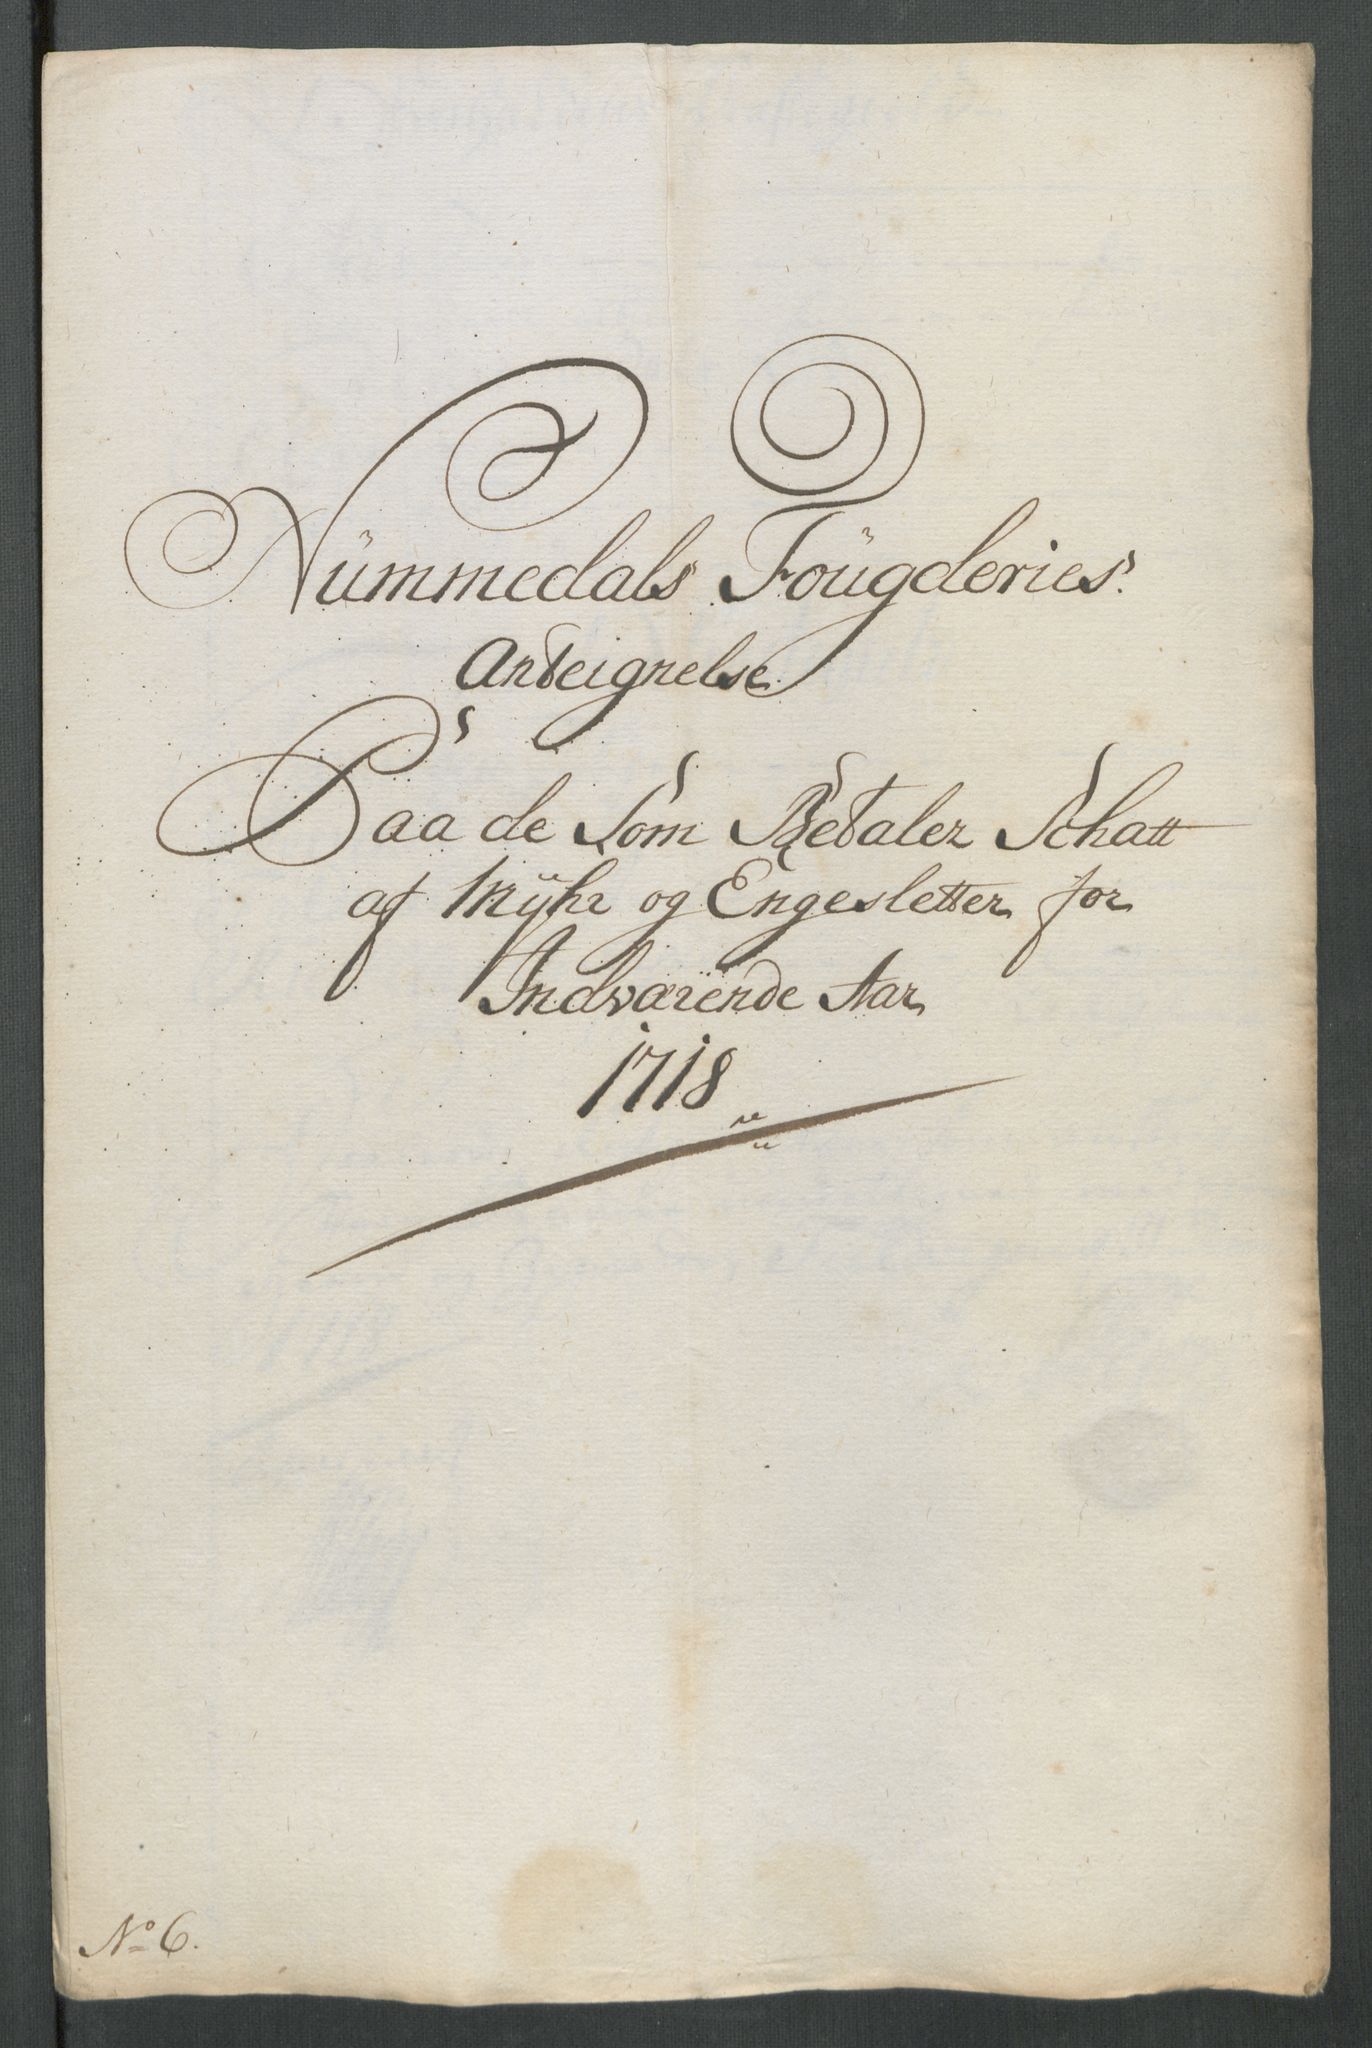 Nümmedals Foügderies
Anteignelse
Paa de Som Betaler Schatt
af Mÿhr og Engesletter for
Indværende Aar
1718
No 6.